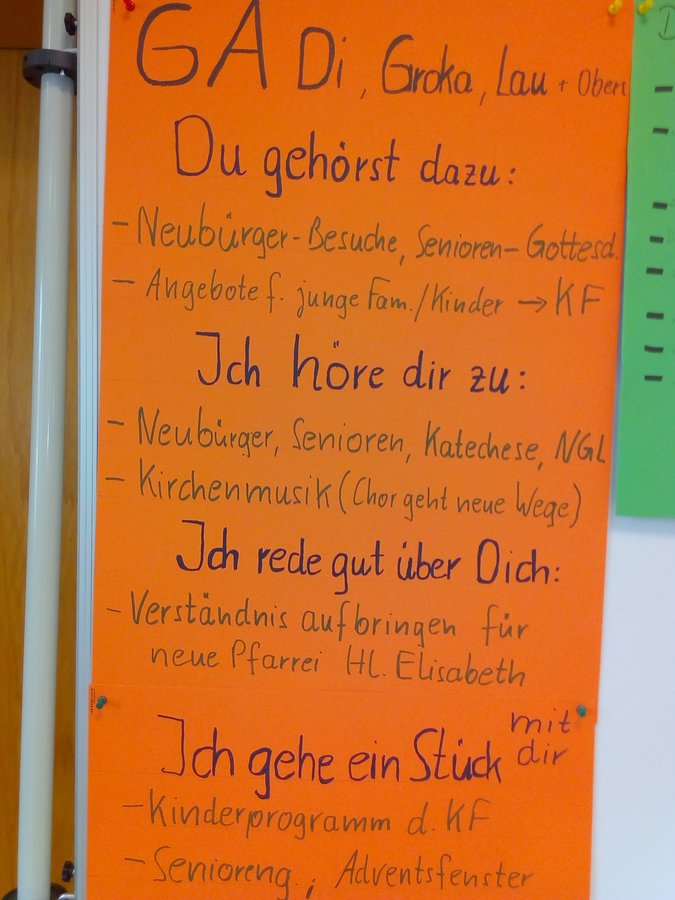 GA Di, Groka, Lau + Obers
Du gehörst dazu:
- Neubürger-Besuche, Senioren-Gottesd.
- Angebote f. junge Fam./Kinder → KF
Ich höre dir zu:
- Neubürger, Senioren, Katechese, NGL
- Kirchenmusik (Chor geht neue Wege)
Ich rede gut über Dich:
- Verständnis aufbringen für
neue Pfarrei Hl. Elisabeth
Ich gehe ein Stück mit dir
- Kinderprogramm d. KF
- Senioreng., Adventsfenster